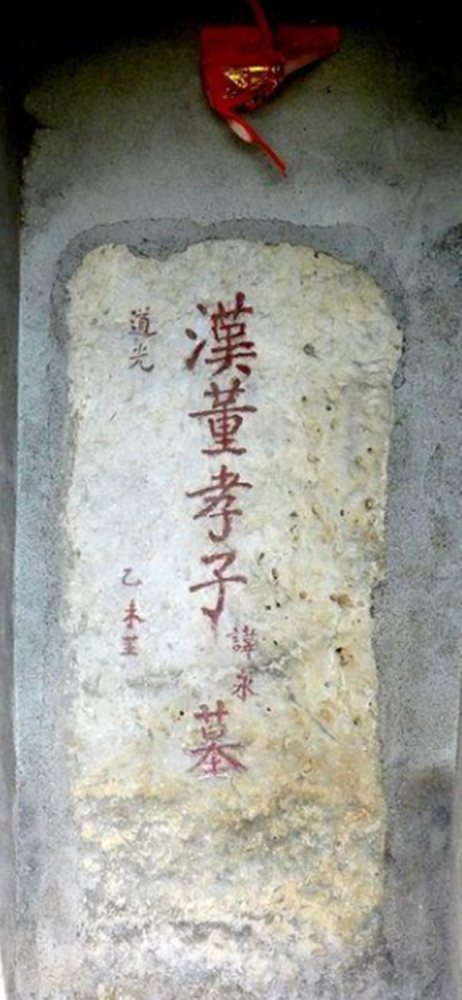 漢董孝子墓
諱永
道光
乙未